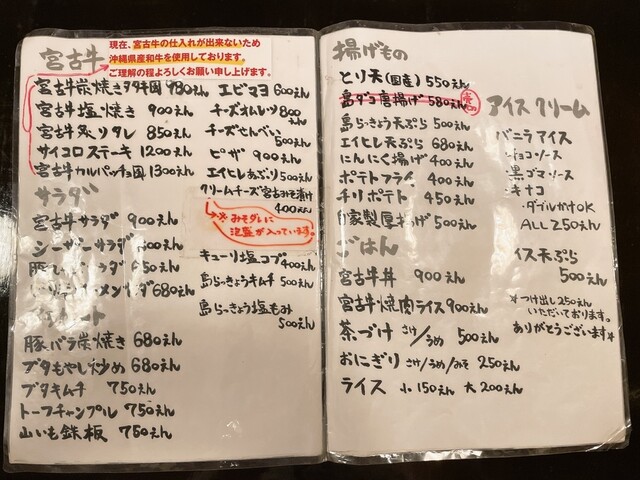 宮古牛
現在、宮古牛の仕入れが出来ないため
沖縄県産和牛を使用しております。
ご理解の程よろしくお願い申し上げます。
宮古牛炭焼きタタキ風 980えん
宮古牛塩焼き 900えん
宮古牛炙りタレ 850えん
サイコロステーキ 1200えん
宮古牛カルパッチョ風 1300えん
サラダ
宮古牛サラダ 900えん
シーザーサラダ
680えん
豚バラ炭焼き 680えん
ブタもやし炒め 680えん
ブタキムチ 750えん
トーフチャンプル 750えん
山いも鉄板 750えん
エビマヨ 600えん
チーズオムレツ 800えん
チーズせんべい
500えん
ピザ 900えん
エイヒレあぶり 500えん
クリームチーズ宮古みそ漬け
400えん
※みそダレに
泡盛が入っています。
キューリ塩コブ 400えん
島らっきょうキムチ 500えん
島らっきょう塩もみ
500えん
揚げもの
とり天(国産) 550えん
島ダコ唐揚げ 580えん
島らっきょう天ぷら 500えん
エイヒレ天ぷら 680えん
にんにく揚げ 400えん
ポテトフライ 400えん
チリポテト 450えん
自家製厚揚げ 500えん
ごはん
宮古牛丼 900えん
宮古牛焼肉ライス 900えん
茶づけ さけ/うめ 500えん
おにぎり さけ/うめ/みそ 250えん
ライス 小 150えん 大 200えん
アイスクリーム
バニラアイス
チョコソース
黒ゴマソース
キナコ
ダブルかけOK
ALL 250えん
アイス天ぷら
500えん
*つけ出し250えん
いただいております。
ありがとうございます*